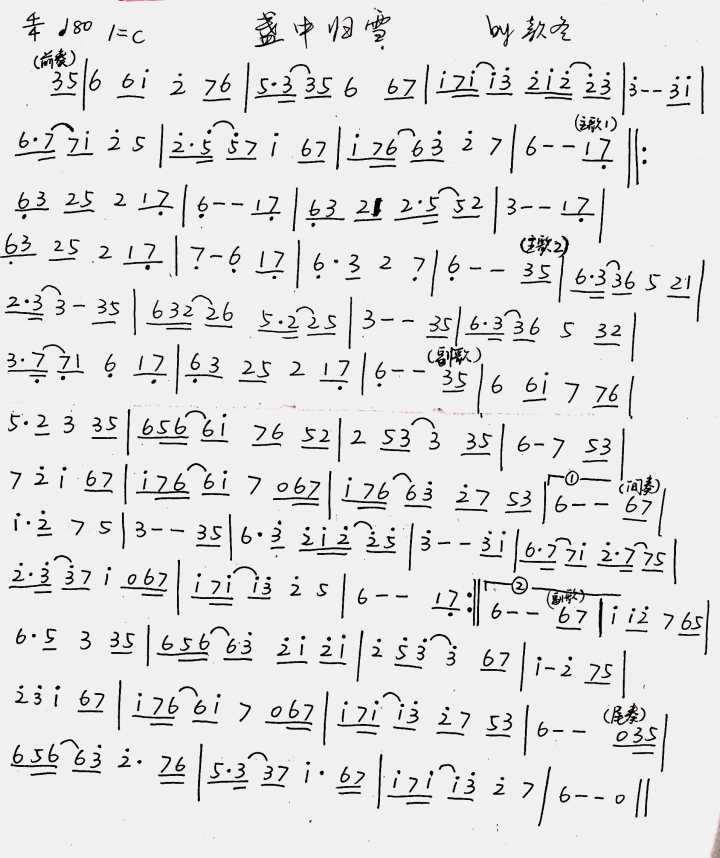 4/4 ♩80 1=C 盏中归雪 by 款冬
(前奏)
35|6 6i̇ 2̇ 76|5·3 35 6 67|i̇7i̇ i̇3̇ 2̇i̇2̇ 2̇3̇|3̇--3̇i̇|
(主歌1)
6·7 7i̇ 2̇ 5|2̇·5̇ 5̇7 i̇ 67|i̇76 63̇ 2̇ 7|6--17̣‖:
6̣3 25 2 17̣|6̣--17̣|6̣3 21 2·5 52|3--17̣|
6̣3 25 2 17̣|7̣-6̣ 17̣|6̣·3 2 7̣|6̣-- (主歌2) 35|6·3 36 5 21|
2·3 3-35|632 26 5·2 25|3--35|6·3 36 5 32|
3·7̣ 7̣1 6̣ 17̣|6̣3 25 2 17̣|6̣-- (副歌) 35|6 6i̇ 7 76|
5·2 3 35|656 6i̇ 76 52|2 53 3 35|6-7 53|
7 2̇ i̇ 67|i̇76 6i̇ 7 067|i̇76 63̇ 2̇7 53|① 6-- (间奏) 67|
i̇·2̇ 7 5|3--35|6·3̇ 2̇i̇2̇ 2̇5̇|3̇--3̇i̇|6·7 7i̇ 2̇·7 75|
2̇·3̇ 3̇7 i̇ 067|i̇7i̇ i̇3̇ 2̇ 5|6-- 17̣:‖② 6-- (副歌) 67|i̇ i̇2̇ 7 65|
6·5 3 35|656 63̇ 2̇i̇ 2̇i̇|2̇ 5̇3̇ 3̇ 67|i̇-2̇ 75|
2̇3̇i̇ 67|i̇76 6i̇ 7 067|i̇7i̇ i̇3̇ 2̇7 53|6-- (尾奏) 035|
656 63̇ 2̇· 76|5·3 37 i̇· 67|i̇7i̇ i̇3̇ 2̇ 7|6--0‖